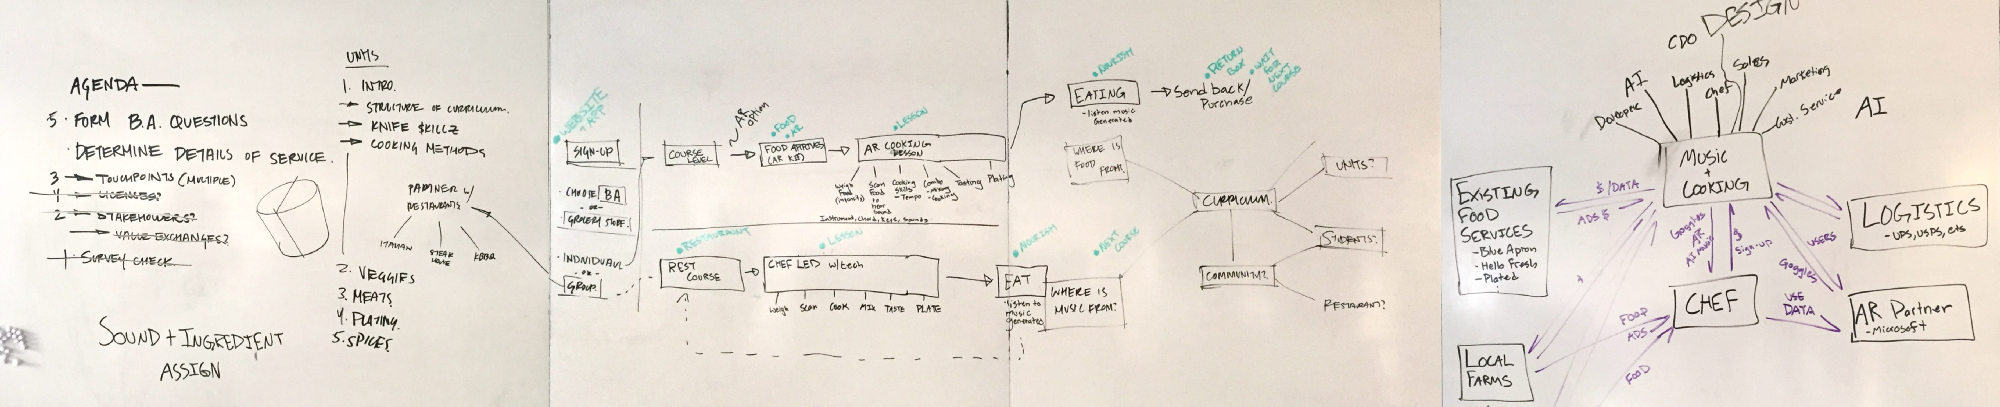 AGENDA
5 · FORM B.A. QUESTIONS
· DETERMINE DETAILS OF SERVICE.
3 → TOUCHPOINTS (MULTIPLE)
4 → LICENSES?
2 → STAKEHOLDERS?
→ VALUE EXCHANGES?
1 · SURVEY CHECK
SOUND + INGREDIENT
ASSIGN
UNITS
1. INTRO.
→ STRUCTURE OF CURRICULUM.
→ KNIFE $KILLZ
→ COOKING METHODS
PARTNER W/
RESTAURANTS
ITALIAN
STEAK
HOUSE
2. VEGGIES
3. MEATS
4. PLATING.
5. SPICES
• WEBSITE
+ APP
SIGN-UP
· CHOOSE BA
- OR -
GROCERY STORE.
· INDIVIDUAL
- OR -
GROUP.
AR
OPTION
COURSE
LEVEL
• FOOD
• AR
FOOD ARRIVES
(AR KIT)
• LESSON
AR COOKING
LESSON
Weigh
Food
(intensity)
Scan
Food
to
hear
sound
Cooking
skills
- Tempo
Combo
- mixing
- cooking
Tasting
Plating
Instrument, Chord, Keys, Sounds
• RESTAURANT
REST
COURSE
• LESSON
CHEF LED w/tech
Weigh
SCAN
COOK
MIX
TASTE
PLATE
• NOURISH
EATING
- listen music
Generated
→ Send back/
Purchase
• RETURN
BOX
• WAIT
FOR
NEXT
COURSE
WHERE IS
FOOD
FROM?
• NOURISH
EAT
- listen to
music
generated
• NEXT
COURSE
WHERE IS
MUSIC FROM?
CURRICULUM.
UNITS?
STUDENTS?
COMMUNITY?
RESTAURANT?
CDO DESIGN
AI
Logistics
Chef
Sales
Marketing
Cust. Service
AI
MUSIC
+
COOKING
EXISTING
FOOD
SERVICES
- Blue Apron
- Hello Fresh
- Plated
$/DATA
ADS $
Goggles
AR
AI music
$
Sign-up
USERS
Goggles
LOGISTICS
- UPS, USPS, etc
CHEF
USE
DATA
AR Partner
- Microsoft
FOOD
ADS
FOOD
LOCAL
FARMS